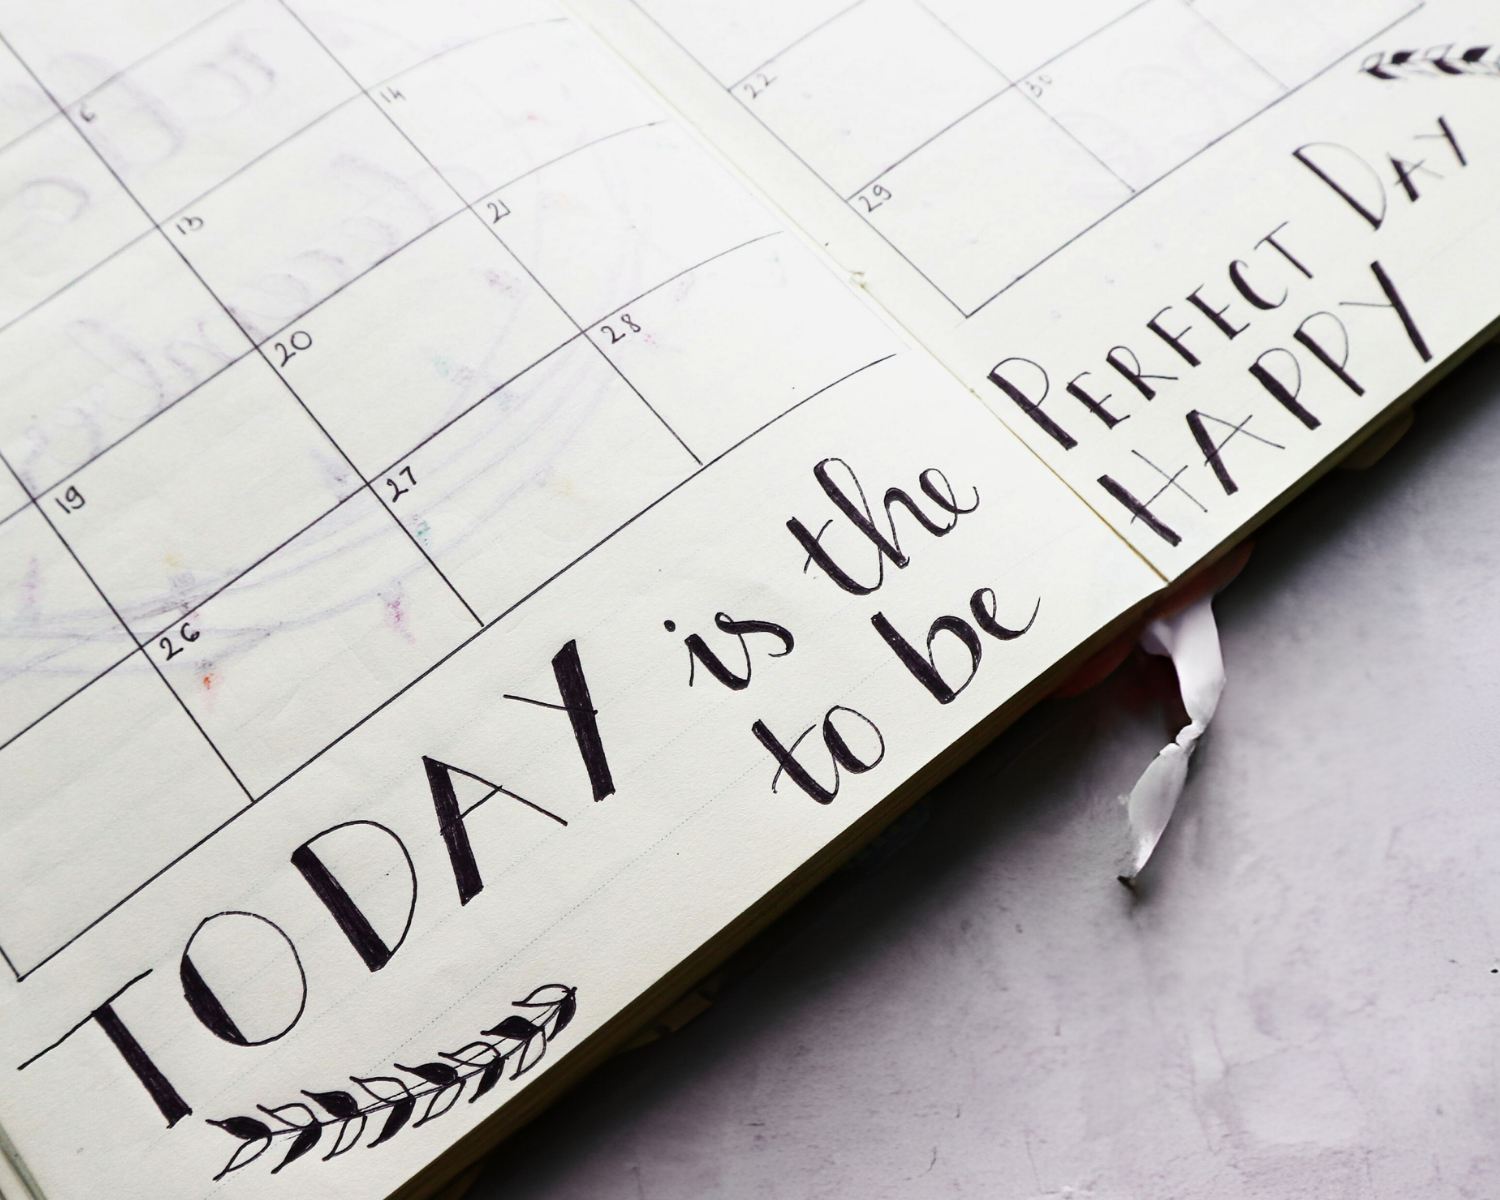 6
14
13
21
20
28
19
27
26
22
30
29
TODAY is the
to be
PERFECT DAY
HAPPY